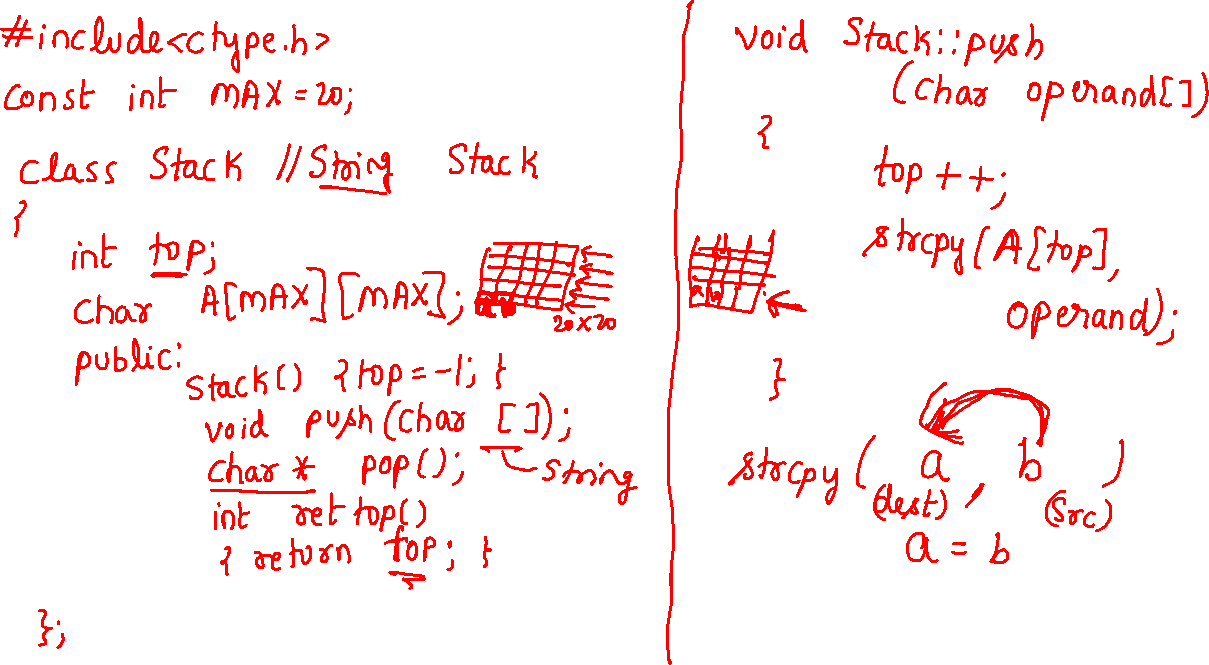 #include<ctype.h>
const int MAX = 20;
class Stack // String Stack
{
int top;
char A[MAX][MAX];
ab
20x20
public:
Stack() { top = -1; }
void push(char []);
String
char * pop();
int rettop()
{ return top; }
};
void Stack::push
(char operand[])
{
top ++;
strcpy( A[top],
operand);
ab
}
strcpy( a , b )
(dest) (src)
a = b